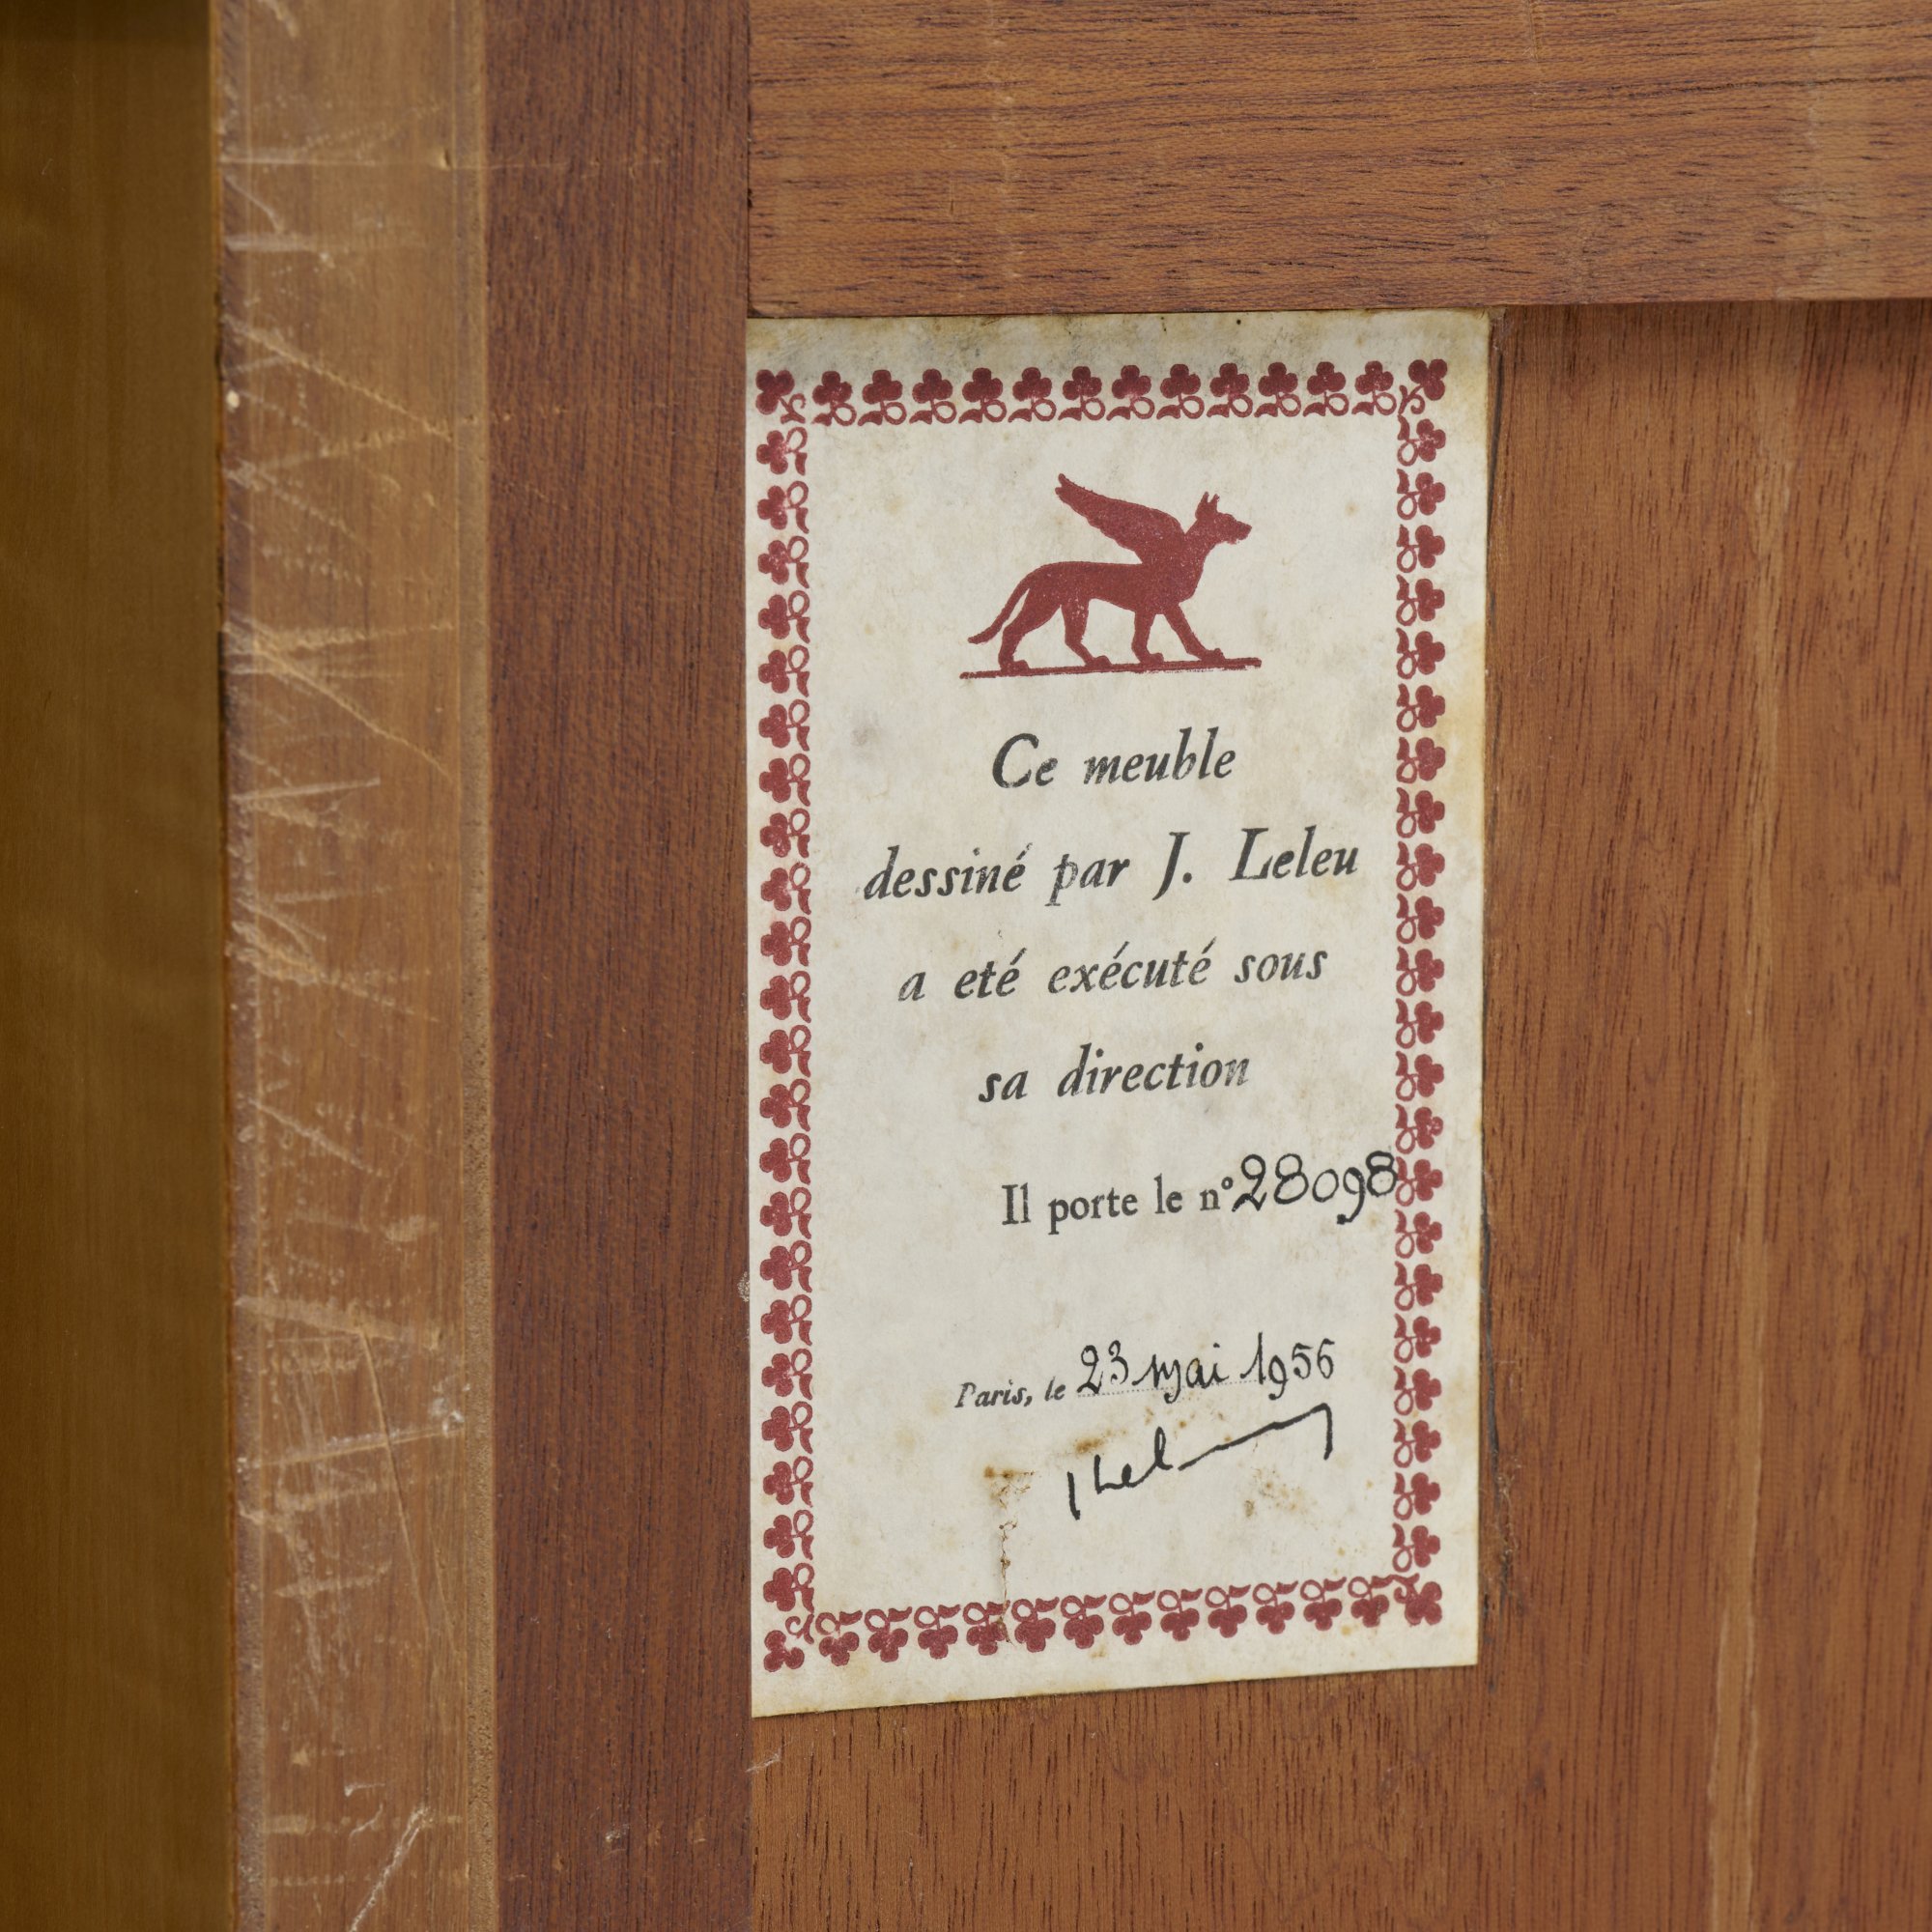 Ce meuble
dessiné par J. Leleu
a eté exécuté sous
sa direction
Il porte le n° 28098
Paris, le 23 mai 1956